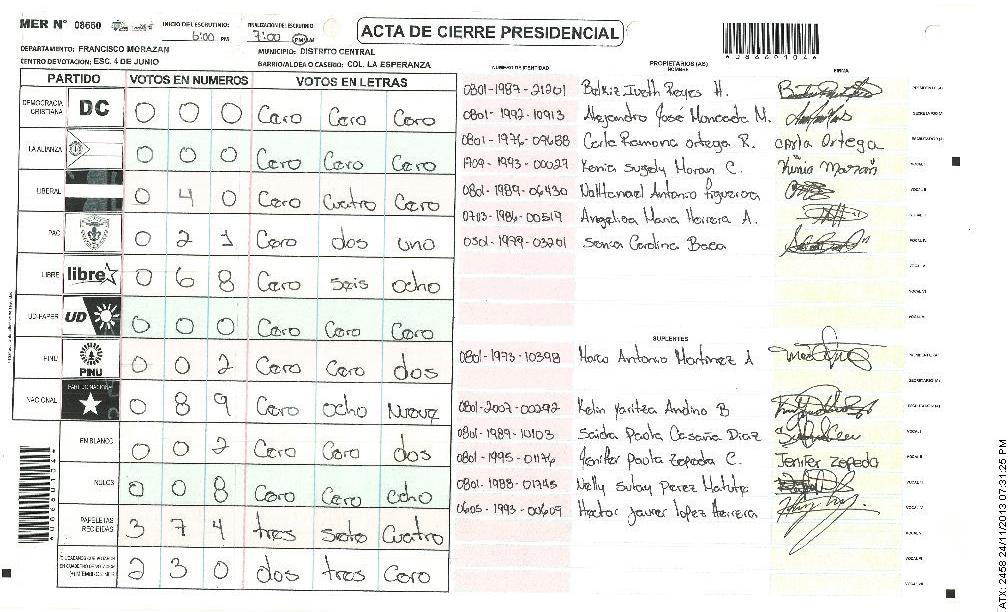 MER N° 08660
INICIO DEL ESCRUTINIO:
6:00 PM
FINALIZACION DEL ESCRUTINIO:
7:00 PM AM
ACTA DE CIERRE PRESIDENCIAL
DEPARTAMENTO: FRANCISCO MORAZAN
MUNICIPIO: DISTRITO CENTRAL
CENTRO DE VOTACION: ESC. 4 DE JUNIO
BARRIO/ALDEA O CASERIO: COL. LA ESPERANZA
PARTIDO VOTOS EN NUMEROS VOTOS EN LETRAS
DEMOCRACIA CRISTIANA DC 0 0 0 Cero Cero Cero
LA ALIANZA 0 0 0 Cero Cero Cero
LIBERAL 0 4 0 Cero Cuatro Cero
PAC 0 2 1 Cero dos uno
LIBRE libre 0 6 8 Cero Seis ocho
UD-FAPER UD 0 0 0 Cero Cero Cero
PINU PINU 0 0 2 Cero Cero dos
NACIONAL PARTIDO NACIONAL 0 8 9 Cero ocho Nueve
EN BLANCO 0 0 2 Cero Cero dos
NULOS 0 0 8 Cero Cero ocho
PAPELETAS RECIBIDAS 3 7 4 tres siete Cuatro
2 3 0 dos tres Cero
NUMERO DE IDENTIDAD PROPIETARIOS (AS) NOMBRE FIRMA
0801-1987-21201 Belkis Iveth Reyes H. PRESIDENTE (A)
0801-1992-10913 Alejandro José Moncada M. SECRETARIO (A)
Carla Ramona Ortega R. Carla Ortega ESCRUTADOR (A)
1709-1993-00027 Kenia Sugely Moran C. VOCAL I
0801-1989-06430 Nathanael Antonio Figueroa VOCAL II
0703-1986-00519 Angelica Maria Herrera A. VOCAL III
0501-1979-03201 Sonia Carolina Baca VOCAL IV
VOCAL V
VOCAL VI
VOCAL VII
SUPLENTES
0801-1973-10398 Marco Antonio Martinez A PRESIDENTE (A)
SECRETARIO (A)
0801-2007-00292 Kelin Yaritza Andino B ESCRUTADOR (A)
0801-1989-10103 Saida Paola Casaña Diaz VOCAL I
0801-1995-01176 Jenifer Paola Zepeda C. Jenifer Zepeda VOCAL II
0801-1988-01745 Nelly Suyapa Perez Matute VOCAL III
0605-1993-00609 Hector Javier Lopez Herrera VOCAL IV
VOCAL V
VOCAL VI
VOCAL VII
ATX: 2458 24/11/2013 07:31:25 PM